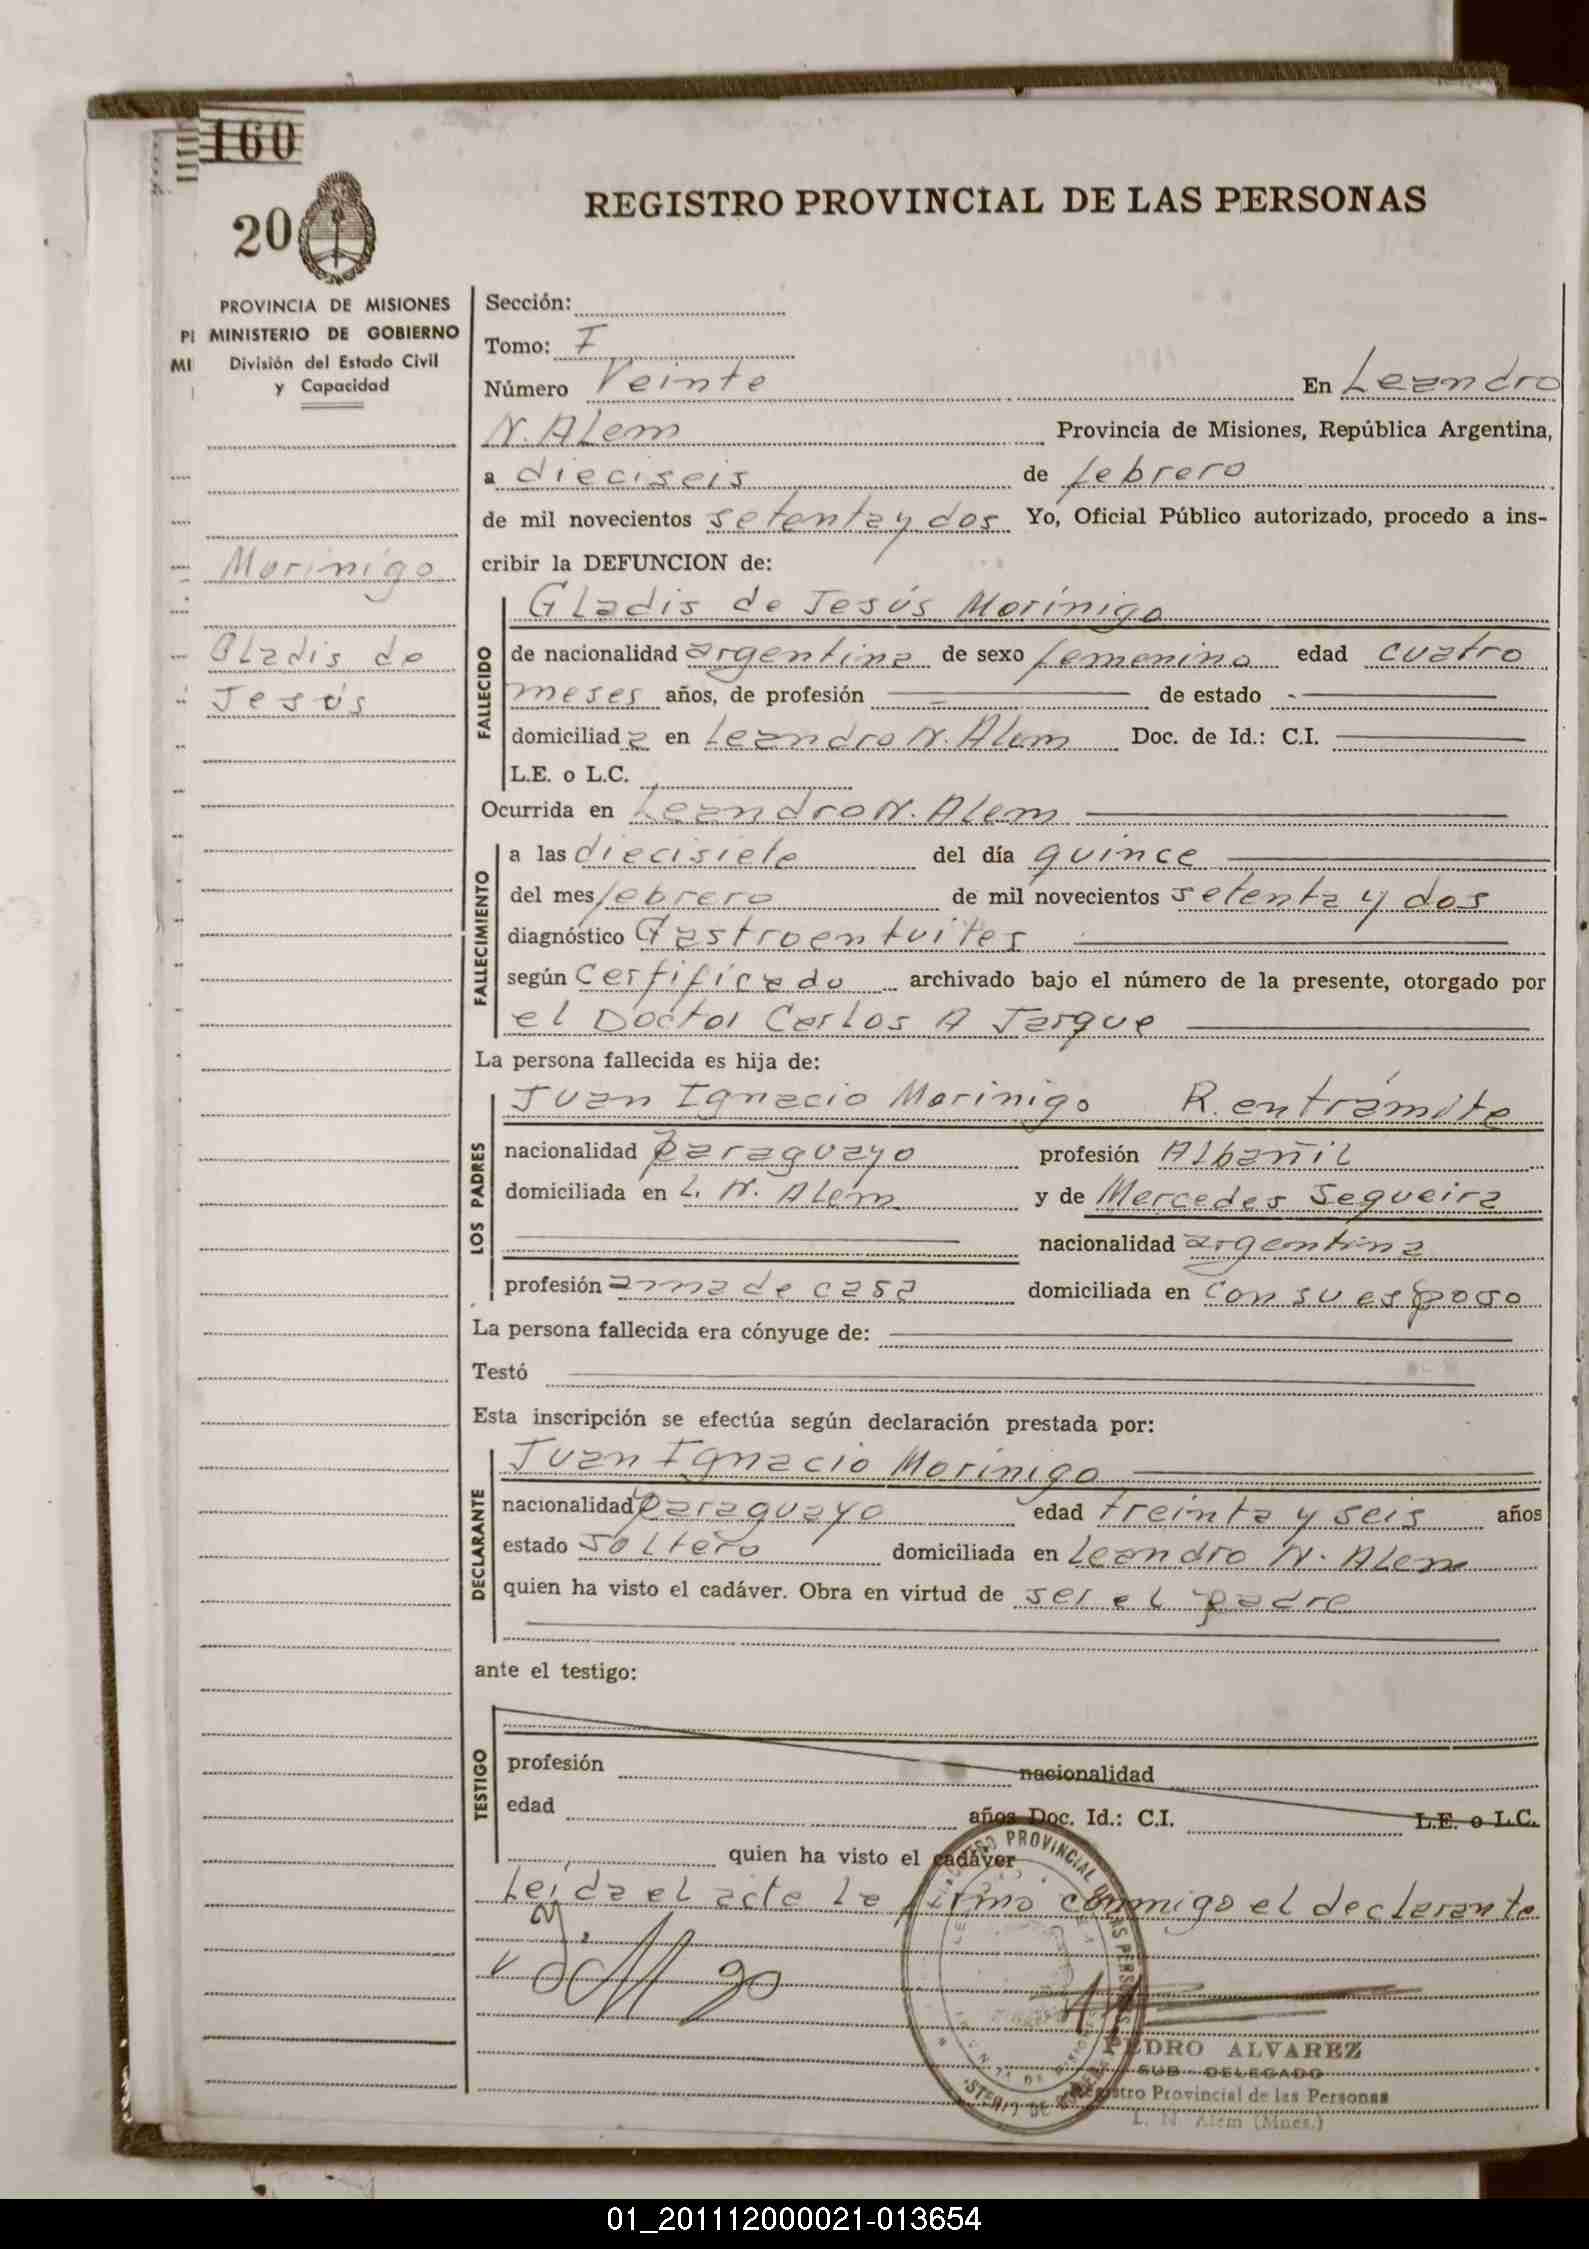 160
20
REGISTRO PROVINCIAL DE LAS PERSONAS
PROVINCIA DE MISIONES
MINISTERIO DE GOBIERNO
División del Estado Civil
y Capacidad
PI
MI
Morinigo
Gladis de
Jesús
Sección:
Tomo: I
Número Veinte En Leandro
N. Alem Provincia de Misiones, República Argentina,
a dieciseis de febrero
de mil novecientos setenta y dos Yo, Oficial Público autorizado, procedo a ins-
cribir la DEFUNCION de:
FALLECIDO
Gladis de Jesús Morínigo
de nacionalidad argentina de sexo femenino edad cuatro
meses años, de profesión — de estado —
domiciliada en Leandro N. Alem Doc. de Id.: C.I. —
L.E. o L.C.
Ocurrida en Leandro N. Alem
FALLECIMIENTO
a las diecisiete del día quince
del mes febrero de mil novecientos setenta y dos
diagnóstico Gastroentuites
según Certificado archivado bajo el número de la presente, otorgado por
el Doctor Carlos A Jarque
La persona fallecida es hija de:
LOS PADRES
Juan Ignacio Morinigo R. en trámite
nacionalidad paraguayo profesión Albañil
domiciliada en L. N. Alem y de Mercedes Sequeira
nacionalidad argentina
profesión ama de casa domiciliada en con su esposo
La persona fallecida era cónyuge de:
Testó
Esta inscripción se efectúa según declaración prestada por:
DECLARANTE
Juan Ignacio Morínigo
nacionalidad paraguayo edad treinta y seis años
estado soltero domiciliada en Leandro N. Alem
quien ha visto el cadáver. Obra en virtud de ser el padre
ante el testigo:
TESTIGO
profesión nacionalidad
edad años Doc. Id.: C.I. L.E. o L.C.
quien ha visto el cadáver
Leída el acta la firma conmigo el declarante
PEDRO ALVAREZ
SUB - DELEGADO
Registro Provincial de las Personas
L. N. Alem (Mnes.)
01_201112000021-013654